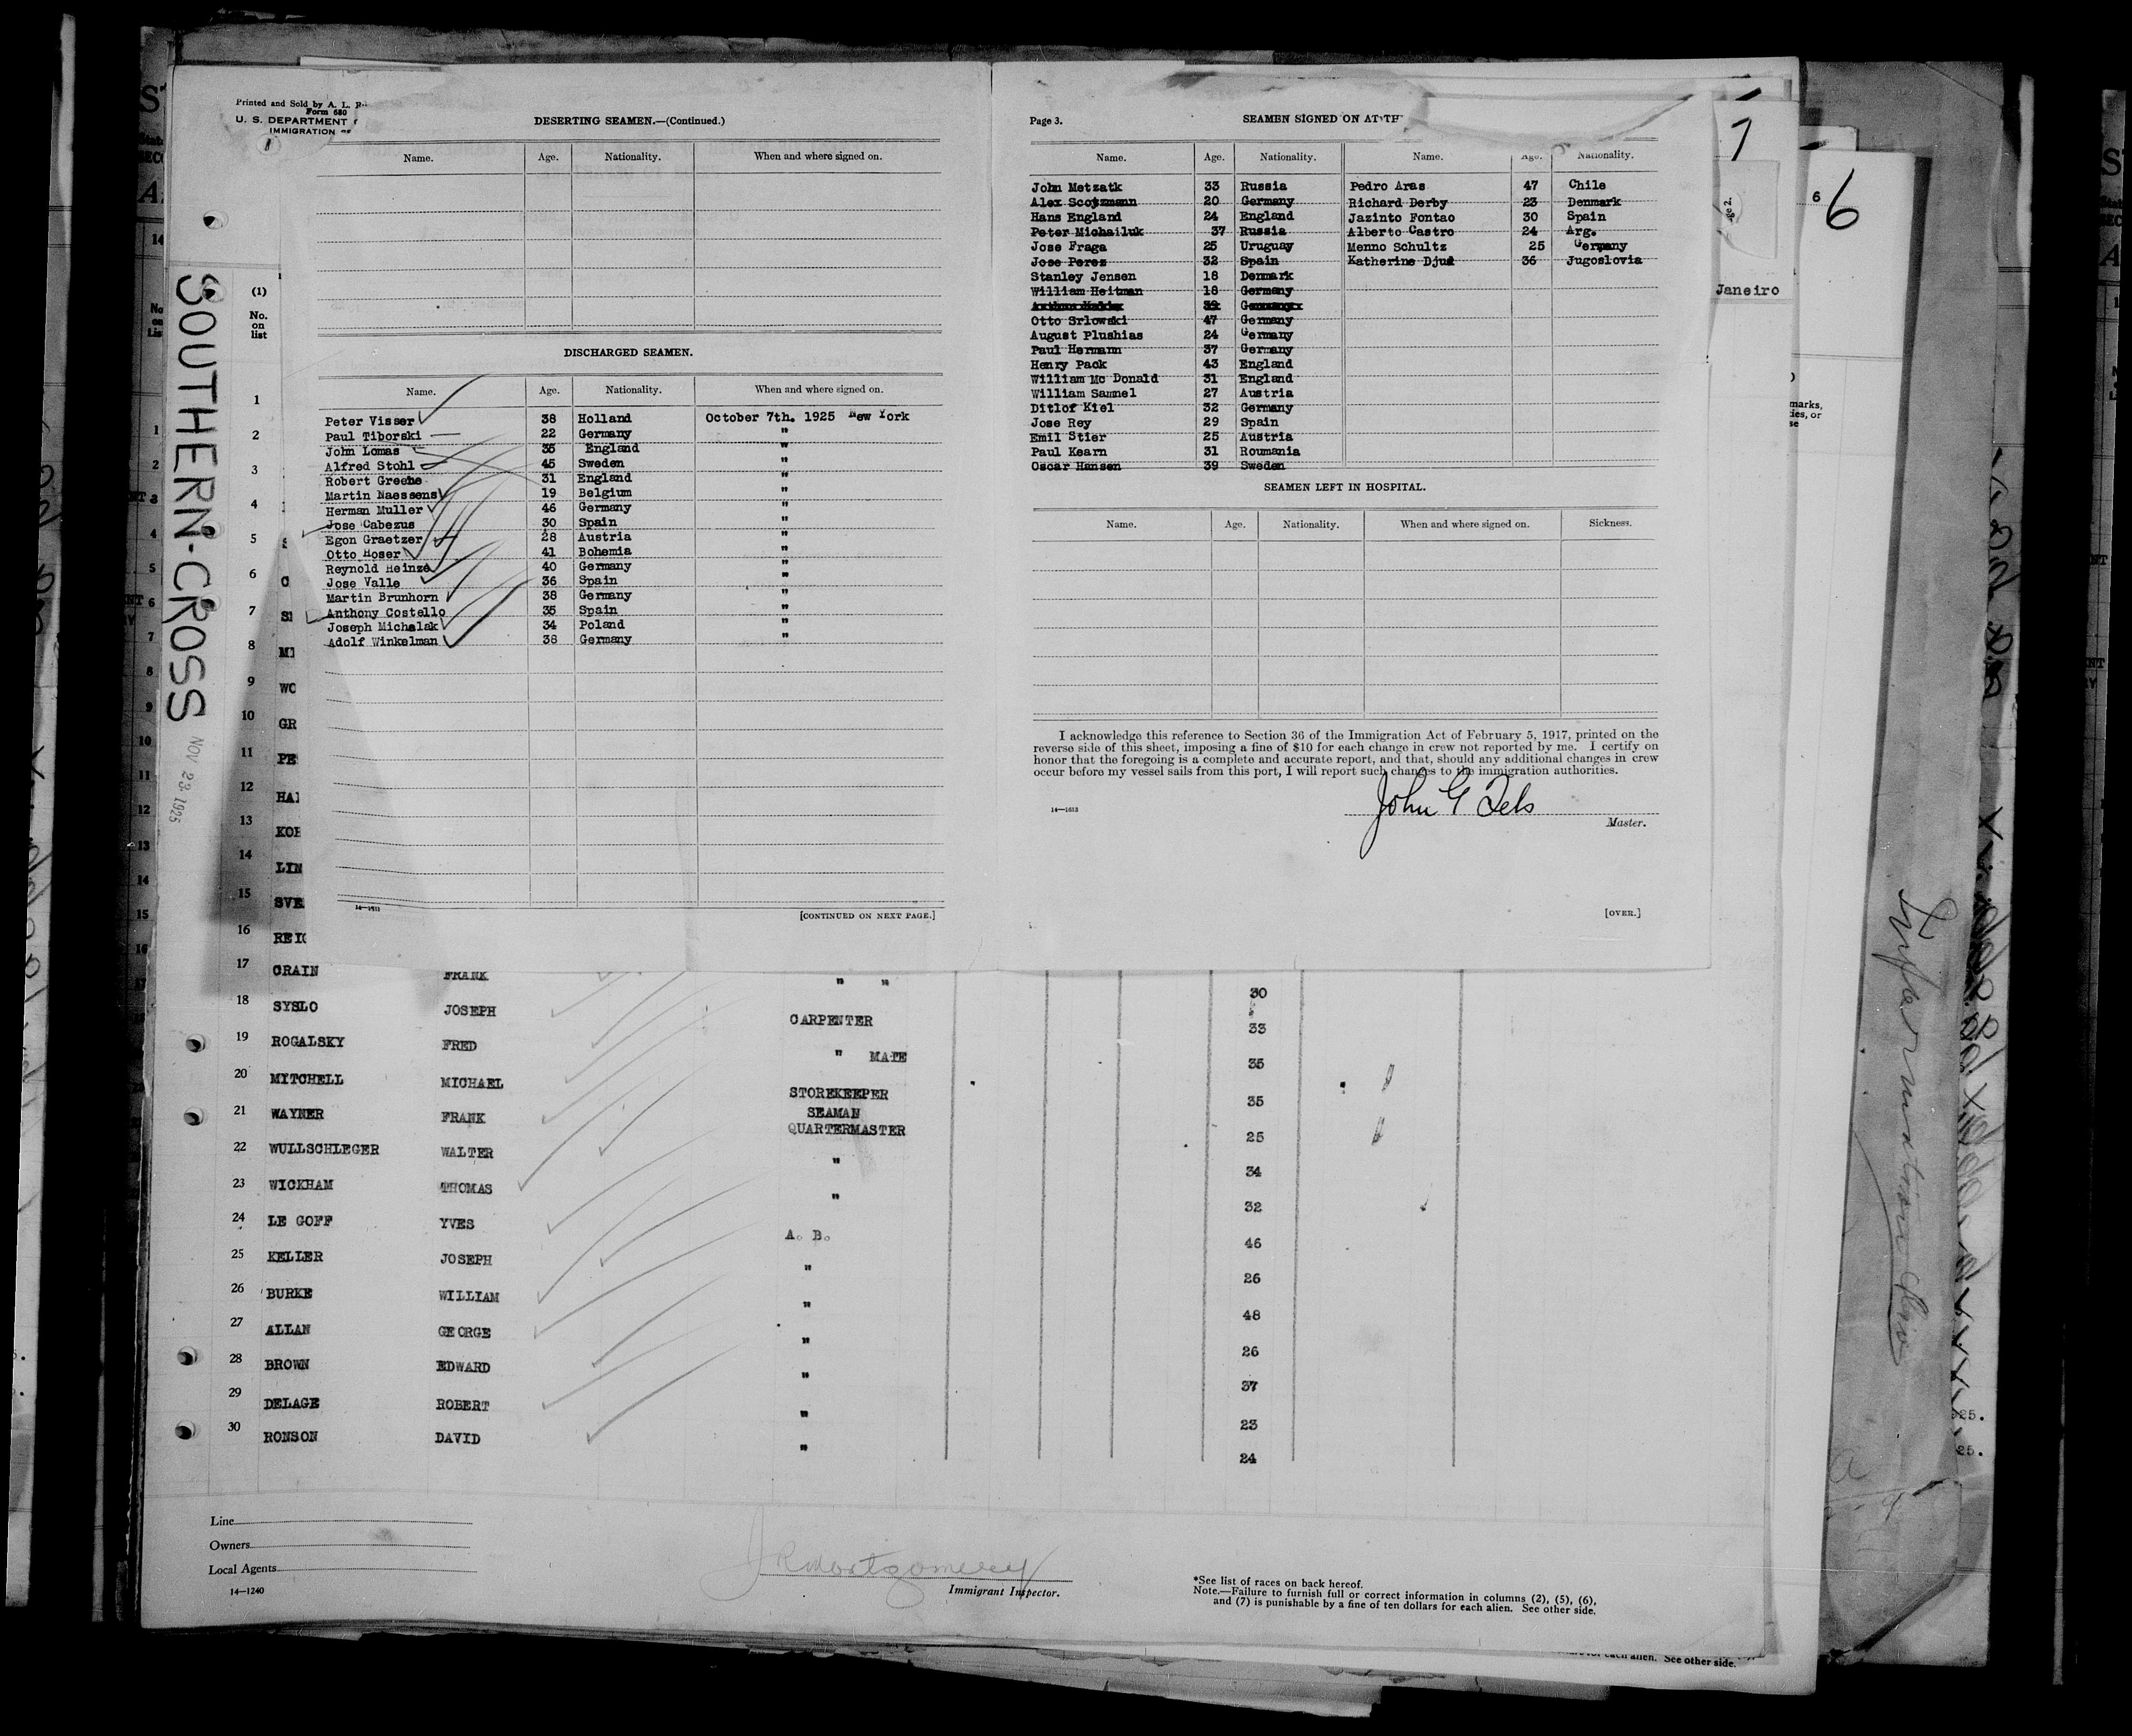 Printed and Sold by A. L.
Form 680
U. S. DEPARTMENT
IMMIGRATION
DESERTING SEAMEN.—(Continued.)
Name. Age. Nationality. When and where signed on.
DISCHARGED SEAMEN.
Name. Age. Nationality. When and where signed on.
Peter Visser 38 Holland October 7th. 1925 New York
Paul Tiborski 22 Germany "
John Lomas 35 England "
Alfred Stohl 45 Sweden "
Robert Greene 31 England "
Martin Naessens 19 Belgium "
Herman Muller 46 Germany "
Jose Cabezus 30 Spain "
Egon Graetzer 28 Austria "
Otto Hoser 41 Bohemia "
Reynold Heinze 40 Germany "
Jose Valle 36 Spain "
Martin Brunhorn 38 Germany "
Anthony Costello 35 Spain "
Joseph Michalak 34 Poland "
Adolf Winkelman 38 Germany "
14—1613
[CONTINUED ON NEXT PAGE.]
Page 3.
SEAMEN SIGNED ON AT TH
Name. Age. Nationality. Name. Age. Nationality.
John Metzatk 33 Russia Pedro Aras 47 Chile
Alex Scotzmann 20 Germany Richard Derby 23 Denmark
Hans England 24 England Jazinto Fontao 30 Spain
Peter Michailuk 37 Russia Alberto Castro 24 Arg.
Jose Fraga 25 Uruguay Menno Schultz 25 Germany
Jose Perez 32 Spain Katherine Djud 36 Jugoslovia
Stanley Jensen 18 Denmark
William Heitman 18 Germany
Otto Srlowski 47 Germany
August Plushias 24 Germany
Paul Hermann 37 Germany
Henry Pack 43 England
William Mc Donald 31 England
William Sammel 27 Austria
Ditlof Kiel 32 Germany
Jose Rey 29 Spain
Emil Stier 25 Austria
Paul Kearn 31 Roumania
Oscar Hansen 39 Sweden
SEAMEN LEFT IN HOSPITAL.
Name. Age. Nationality. When and where signed on. Sickness.
I acknowledge this reference to Section 36 of the Immigration Act of February 5, 1917, printed on the
reverse side of this sheet, imposing a fine of $10 for each change in crew not reported by me. I certify on
honor that the foregoing is a complete and accurate report, and that, should any additional changes in crew
occur before my vessel sails from this port, I will report such changes to the immigration authorities.
14—1613
John G
Master.
[OVER.]
SOUTHERN-CROSS
NOV 23 1925
(1)
No.
on
list
1
2
3
4
5
6
7
8
9 WO
10 GR
11 PE
12 HA
13 KOE
14 LIN
15 SVE
16 REI
17 CRAIN FRANK " " 30
18 SYSLO JOSEPH CARPENTER 33
19 ROGALSKY FRED " MATE 35
20 MITCHELL MICHAEL STOREKEEPER 35
SEAMAN
21 WAYNER FRANK QUARTERMASTER 25
22 WULLSCHLEGER WALTER " 34
23 WICKHAM THOMAS " 32
24 LE GOFF YVES A. B. 46
25 KELLER JOSEPH " 26
26 BURKE WILLIAM " 48
27 ALLAN GEORGE " 26
28 BROWN EDWARD " 37
29 DELAGE ROBERT " 23
30 RONSON DAVID " 24
Line
Owners
Local Agents
14—1240
J R Montgomery
Immigrant Inspector.
*See list of races on back hereof.
Note.—Failure to furnish full or correct information in columns (2), (5), (6),
and (7) is punishable by a fine of ten dollars for each alien. See other side.
each alien. See other side.
Janeiro
7
6
6
marks,
ies, or
se
Information
25.
25.